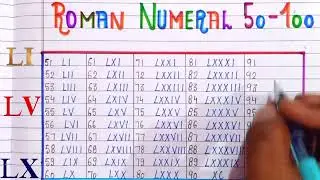 ROMAN NUMERAL 50-100
LI
LV
LX
51 LI 61 LXI 71 LXXI 81 LXXXI 91
52 LII 62 LXII 72 LXXII 82 LXXXII 92
53 LIII 63 LXIII 73 LXXIII 83 LXXXIII 93
54 LIV 64 LXIV 74 LXXIV 84 LXXXIV 94
55 LV 65 LXV 75 LXXV 85 LXXXV
56 LVI 66 LXVI 76 LXXVI 86 LXXXVI
57 LVII 67 LXVII 77 LXXVII 87 LXXXVII
58 LVIII 68 LXVIII 78 LXXVIII 88
59 LIX 69 LXIX 79 LXXIX 89 LXXXIX
60 LX 70 LXX 80 LXXX 90 XC